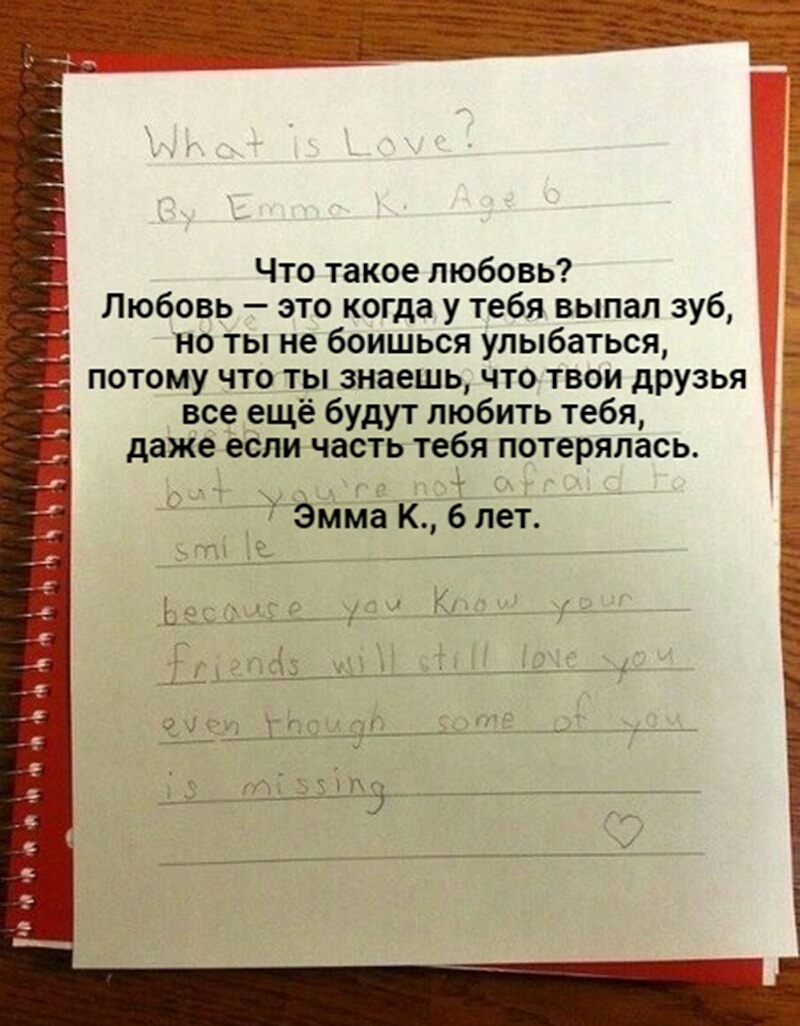 What is Love?
By Emma K. Age 6
Что такое любовь?
Любовь — это когда у тебя выпал зуб,
но ты не боишься улыбаться,
потому что ты знаешь, что твои друзья
все ещё будут любить тебя,
даже если часть тебя потерялась.
but you're not afraid to
Эмма К., 6 лет.
smile
because you know your
friends will still love you
even though some of you
is missing